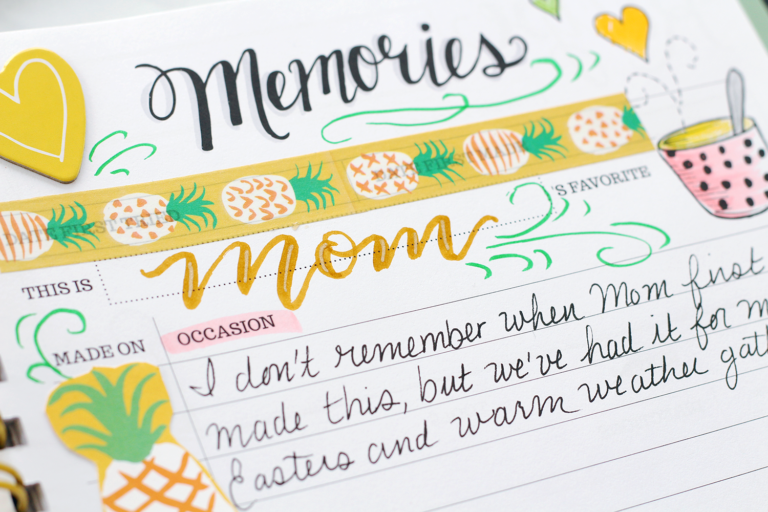 Memories
DATE FIRST TRIED
'S FAVORITE
THIS IS
mom
OCCASION
MADE ON
I don't remember when Mom first
made this, but we've had it for
Easters and warm weather